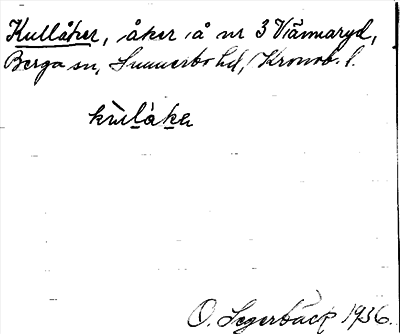 Kullåker, åker å nr 3 Vännaryd,
Berga sn, Sunnerbo hd, Kronob. l.
kùlåkɐ
O. Segerbäck 1936.